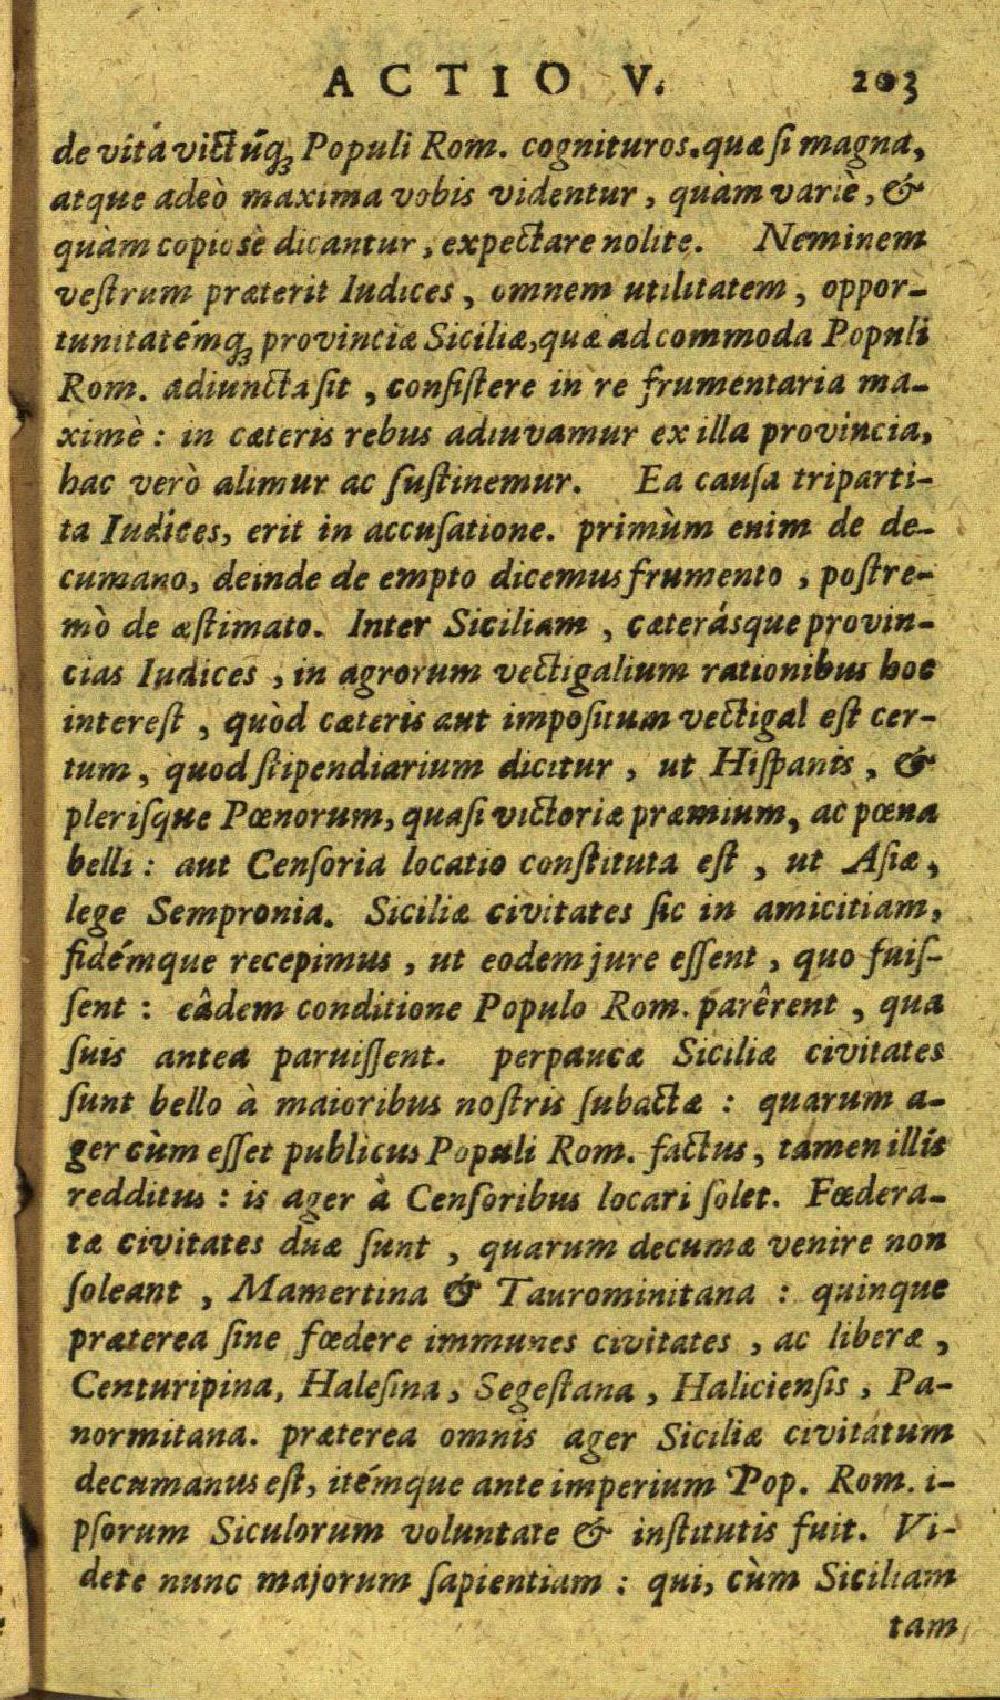 ACTIO V. 203
de vitá victúq; Populi Rom. cognituros. quæ ſi magna,
atque adeò maxima vobis videntur, quàm variè, &
quàm copiosè dicantur, expectare nolite. Neminem
veſtrum præterit Iudices, omnem utilitatem, oppor-
tunitatémq; provinciæ Siciliæ, quæ ad commoda Populi
Rom. adiuncta ſit, conſiſtere in re frumentaria ma-
ximè: in cæteris rebus adiuvamur ex illa provincia,
hac verò alimur ac ſuſtinemur. Ea cauſa triparti-
ta Iudices, erit in accuſatione. primùm enim de de-
cumano, deinde de empto dicemus frumento, poſtre-
mò de æſtimato. Inter Siciliam, cæterásque provin-
cias Iudices, in agrorum vectigalium rationibus hoc
intereſt, quòd cæteris aut impoſitum vectigal eſt cer-
tum, quod ſtipendiarium dicitur, ut Hiſpanis, &
pleriſque Pœnorum, quaſi victoriæ præmium, ac pœna
belli: aut Cenſoria locatio conſtituta eſt, ut Aſiæ,
lege Sempronia. Siciliæ civitates ſic in amicitiam,
fidémque recepimus, ut eodem jure eſſent, quo fuiſ-
ſent: eâdem conditione Populo Rom. parêrent, qua
ſuis antea paruiſſent. perpaucæ Siciliæ civitates
ſunt bello à maioribus noſtris ſubactæ: quarum a-
ger cùm eſſet publicus Populi Rom. factus, tamen illis
redditus: is ager à Cenſoribus locari ſolet. Fœdera-
tæ civitates duæ ſunt, quarum decumæ venire non
ſoleant, Mamertina & Taurominitana: quinque
præterea ſine fœdere immunes civitates, ac liberæ,
Centuripina, Haleſina, Segeſtana, Halicienſis, Pa-
normitana. præterea omnis ager Siciliæ civitatum
decumanus eſt, itémque ante imperium Pop. Rom. i-
pſorum Siculorum voluntate & inſtitutis fuit. Vi-
dete nunc majorum ſapientiam: qui, cùm Siciliam
tam